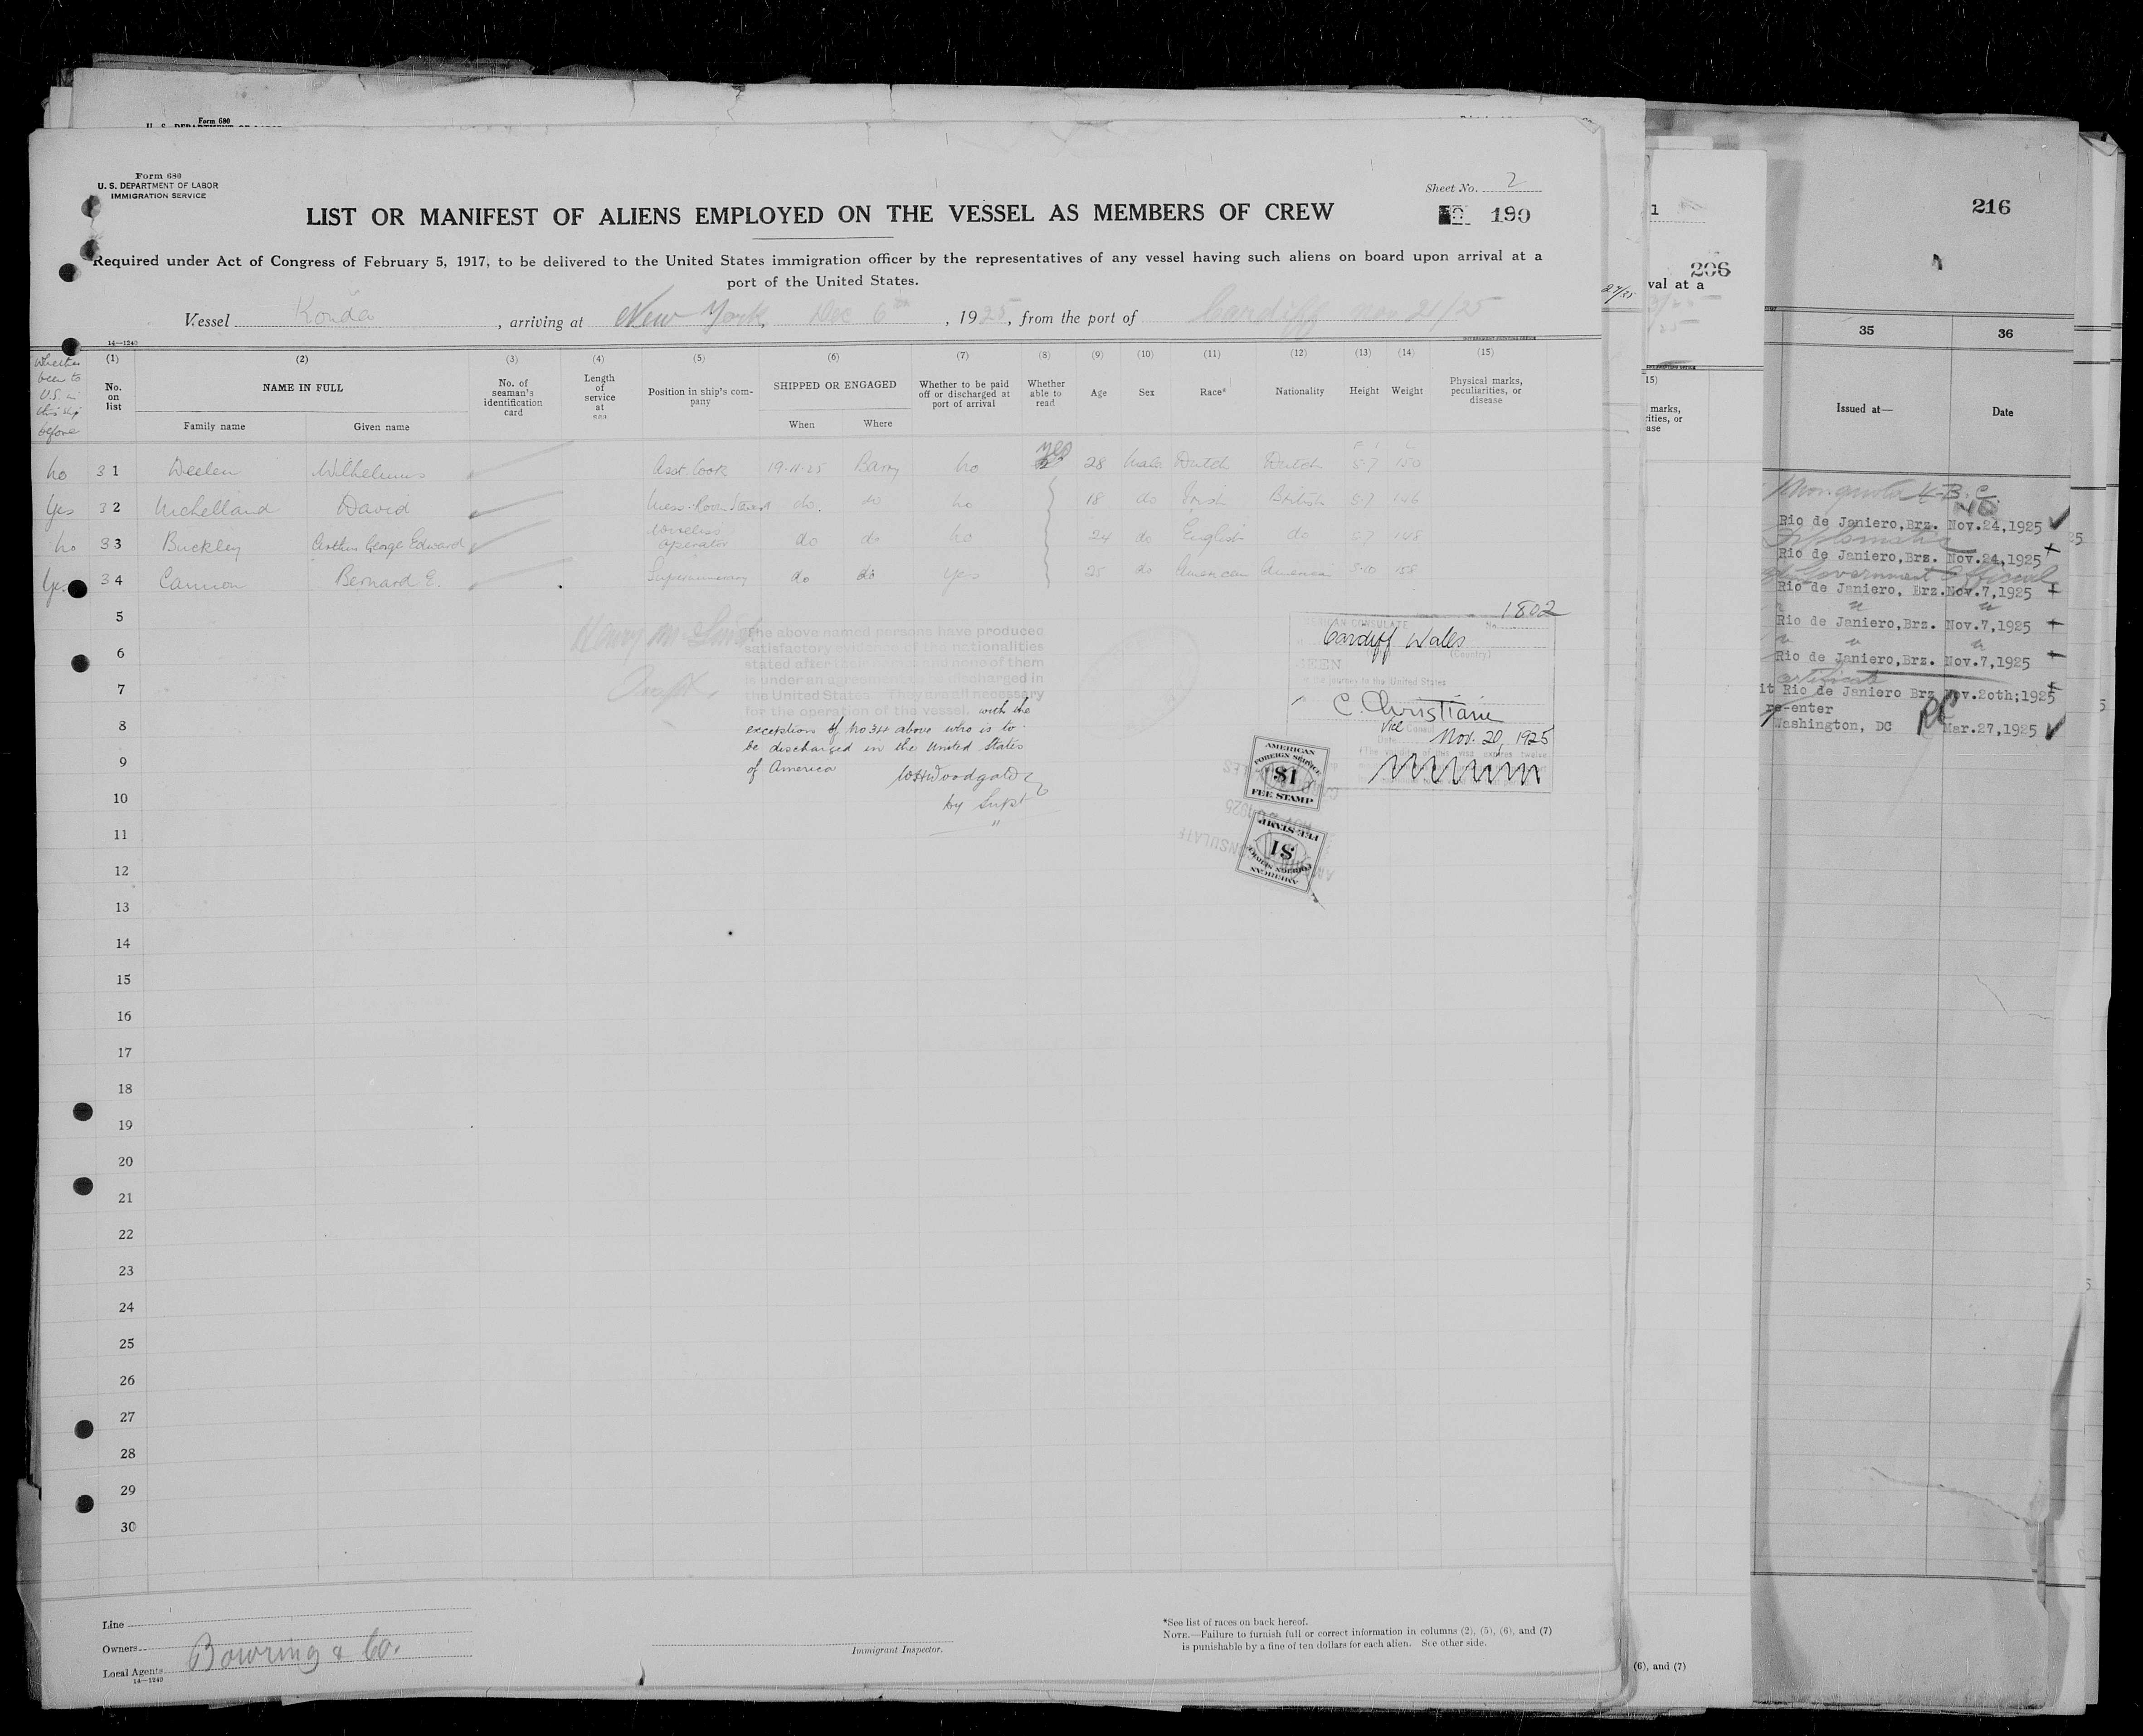 Form 680
U. S. DEPARTMENT OF LABOR
IMMIGRATION SERVICE
Sheet No. 2
LIST OR MANIFEST OF ALIENS EMPLOYED ON THE VESSEL AS MEMBERS OF CREW
190
Required under Act of Congress of February 5, 1917, to be delivered to the United States immigration officer by the representatives of any vessel having such aliens on board upon arrival at a
port of the United States.
Vessel , arriving at New York, Dec 6th , 1925, from the port of Cardiff Nov 21/25
14—1240
Whether been to U.S. in this ship before
(1) (2) (3) (4) (5) (6) (7) (8) (9) (10) (11) (12) (13) (14) (15)
No. on list
NAME IN FULL
Family name
Given name
No. of seaman's identification card
Length of service at sea
Position in ship's company
SHIPPED OR ENGAGED
When
Where
Whether to be paid off or discharged at port of arrival
Whether able to read
Age
Sex
Race*
Nationality
Height
Weight
Physical marks, peculiarities, or disease
no 31 Wilhelmus Asst. Cook 19-11-25 Barry no yes 28 Male Dutch Dutch 5-7 150
Yes 32 David do. do no 18 do Irish British 5-7 146
no 33 Buckley Arthur George Edward Wireless Operator do do no 24 do English do 5-7 148
Yes 34 Cannon Bernard E. Supernumerary do do Yes 25 do American America 5-10 158
5
6
7
8
9
10
11
12
13
14
15
16
17
18
19
20
21
22
23
24
25
26
27
28
29
30
The above named persons have produced
satisfactory evidence of the nationalities
stated after their names and none of them
is under an agreement to be discharged in
the United States. They are all necessary
for the operation of the vessel. with the
exception of No 34 above who is to
be discharged in the United States
of America
by Supt
AMERICAN CONSULATE No. 1802
Cardiff Wales
(Country)
SEEN
journey to the United States
C. Christiani
Vice Consul
Date Nov. 20, 1925
AMERICAN
FOREIGN SERVICE
$1
FEE STAMP
AMERICAN
FOREIGN SERVICE
$1
FEE STAMP
Line
Owners
Local Agents Bowring & Co.
14—1240
Immigrant Inspector.
*See list of races on back hereof.
NOTE.—Failure to furnish full or correct information in columns (2), (5), (6), and (7)
is punishable by a fine of ten dollars for each alien. See other side.
1
206
val at a
(6), and (7)
216
35 36
Issued at— Date
Rio de Janiero,Brz. Nov.24,1925
Diplomatic
Rio de Janiero,Brz. Nov.24,1925
Government Official
Rio de Janiero, Brz. Nov.7,1925
Rio de Janiero,Brz. Nov.7,1925
Rio de Janiero,Brz. Nov.7,1925
it Rio de Janiero Brz Nov.20th;1925
re-enter
Washington, DC Mar.27,1925